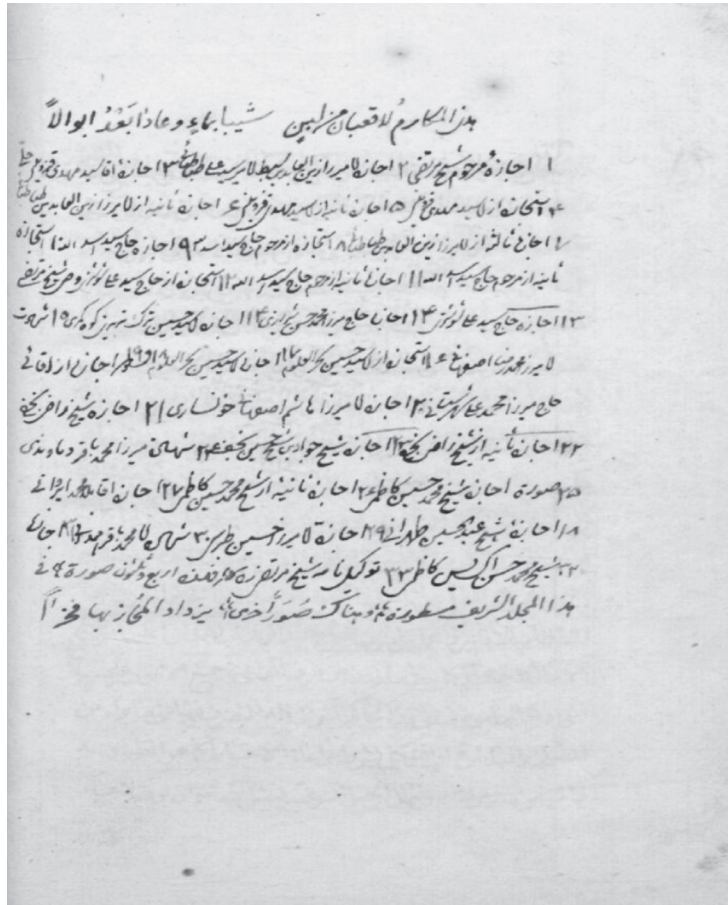 هذی المکارم لا قعبان من لبن شیبا بماء وعادا بعد ابوالاً
۱ اجازهٔ مرحوم شیخ مرتضی ۲ اجازه لا میرزا زین العابدین سید علی طباطبائی ۳ اجازهٔ اقا سید مهدی قزوینی حلی
۴ استجازه از لا سید مهدی قزوینی ۵ اجازه ثانیه از سید مهدی قزوینی ۶ اجازه ثانیه از لا میرزا زین العابدین طباطبائی
۷ اجازهٔ ثالثه از لا میرزا زین العابدین طباطبائی ۸ استجازه از مرحوم حاج سید اسد الله ۹ اجازه حاج سید اسد الله ۱۰ استجازهٔ
ثانیه از مرحوم حاج سید اسد الله ۱۱ اجازهٔ ثانیه از مرحوم حاج سید اسد الله ۱۲ استجازه از حاج سید علی شوشتری وصی شیخ مرتضی
۱۳ اجازه حاج سید علی شوشتری ۱۴ اجازهٔ حاج میرزا محمد حسن شیرازی ۱۴ اجازه لا سید حسین ترک کوه کمری ۱۵
لا میرزا محمد رضا اصفهانی ۱۶ استجازه از لا سید حسین بحر العلوم ۱۷ اجازه لا سید حسین بحر العلوم ۱۸ و ۱۹ اجازه از اقائی
حاج میرزا محمد علی شهرستانی ۲۰ اجازه لا میرزا هاشم اصفهانی خونساری ۲۱ اجازه شیخ راضی نجفی
۲۲ اجازه ثانیه از شیخ راضی نجفی ۲۳ اجازه شیخ جواد بن شیخ حسین نجف ۲۴ میرزا محمد باقر دماوندی
۲۵ صورة اجازه شیخ محمد حسین کاظمی ۲۶ اجازه ثانیه از شیخ محمد حسین کاظمی ۲۷ اجازه اقا محمد ایرانی
۲۸ اجازهٔ شیخ عبد الحسین طهرانی ۲۹ اجازة لا میرزا حسین طبرسی ۳۰ لا محمد باقر
۳۲ شیخ محمد حسن ال یس کاظمی ۳۳ توکیل نامه شیخ مرتضی اربع و ثلثون صورة فی
هذا المجلد الشریف مسطورة و هناک صُوَر أخری یزداد المجاز بها فخراً